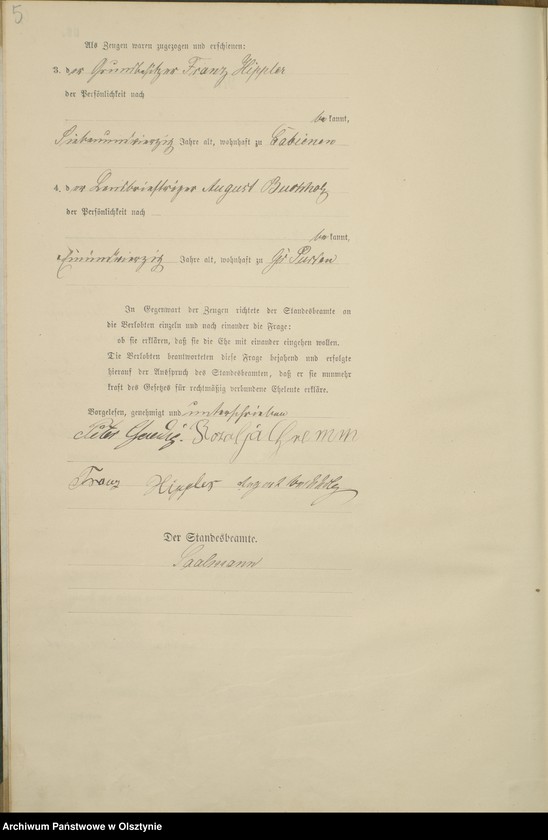 5
Als Zeugen waren zugezogen und erschienen:
3. der Grundbesitzer Franz Hippler
der Persönlichkeit nach
bekannt,
Siebenundvierzig Jahre alt, wohnhaft zu Cabienen
4. der Landbriefträger August Buchholz
der Persönlichkeit nach
bekannt,
Einundvierzig Jahre alt, wohnhaft zu Gr
In Gegenwart der Zeugen richtete der Standesbeamte an
die Verlobten einzeln und nach einander die Frage:
ob sie erklären, daß sie die Ehe mit einander eingehen wollen.
Die Verlobten beantworteten diese Frage bejahend und erfolgte
hierauf der Ausspruch des Standesbeamten, daß er sie nunmehr
kraft des Gesetzes für rechtmäßig verbundene Eheleute erkläre.
Vorgelesen, genehmigt und unterschrieben
Peter Rosalja Gremm
Franz Hippler August Buchholz
Der Standesbeamte.
Saalmann
Archiwum Państwowe w Olsztynie